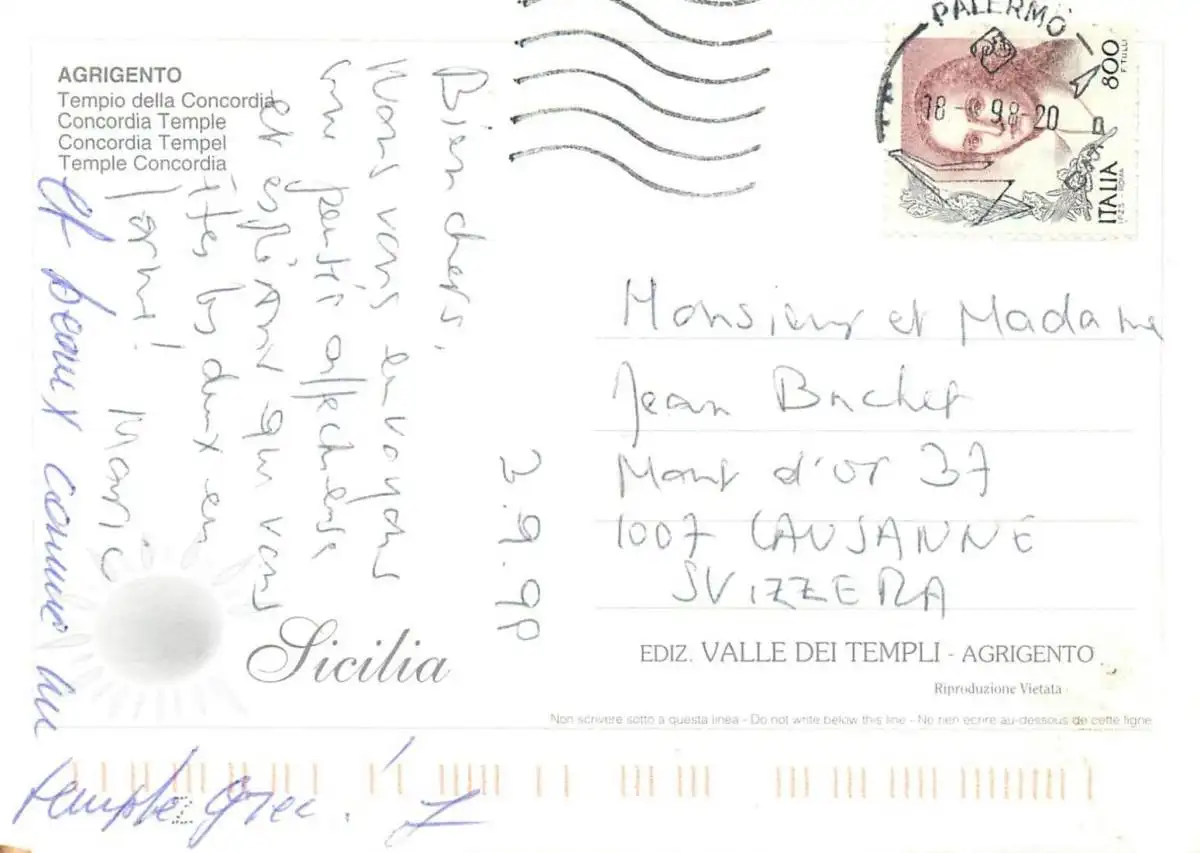 AGRIGENTO
Tempio della Concordia
Concordia Temple
Concordia Tempel
Temple Concordia
Bien chers,
Nous vous envoyons
une pensée affectueuse
et espérons que vous
êtes les deux en
forme!
Marie
et beaux comme un
temple grec.
2.9.98
PALERMO
18 - 98-20
800
F. TULLI
ITALIA
I.P.Z.S. - ROMA
Monsieur et Madame
Jean Bachet
Mont d'or 37
1007 LAUSANNE
SVIZZERA
Sicilia
EDIZ. VALLE DEI TEMPLI - AGRIGENTO
Riproduzione Vietata
Non scrivere sotto a questa linea - Do not write below this line - Ne rien écrire au-dessous de cette ligne